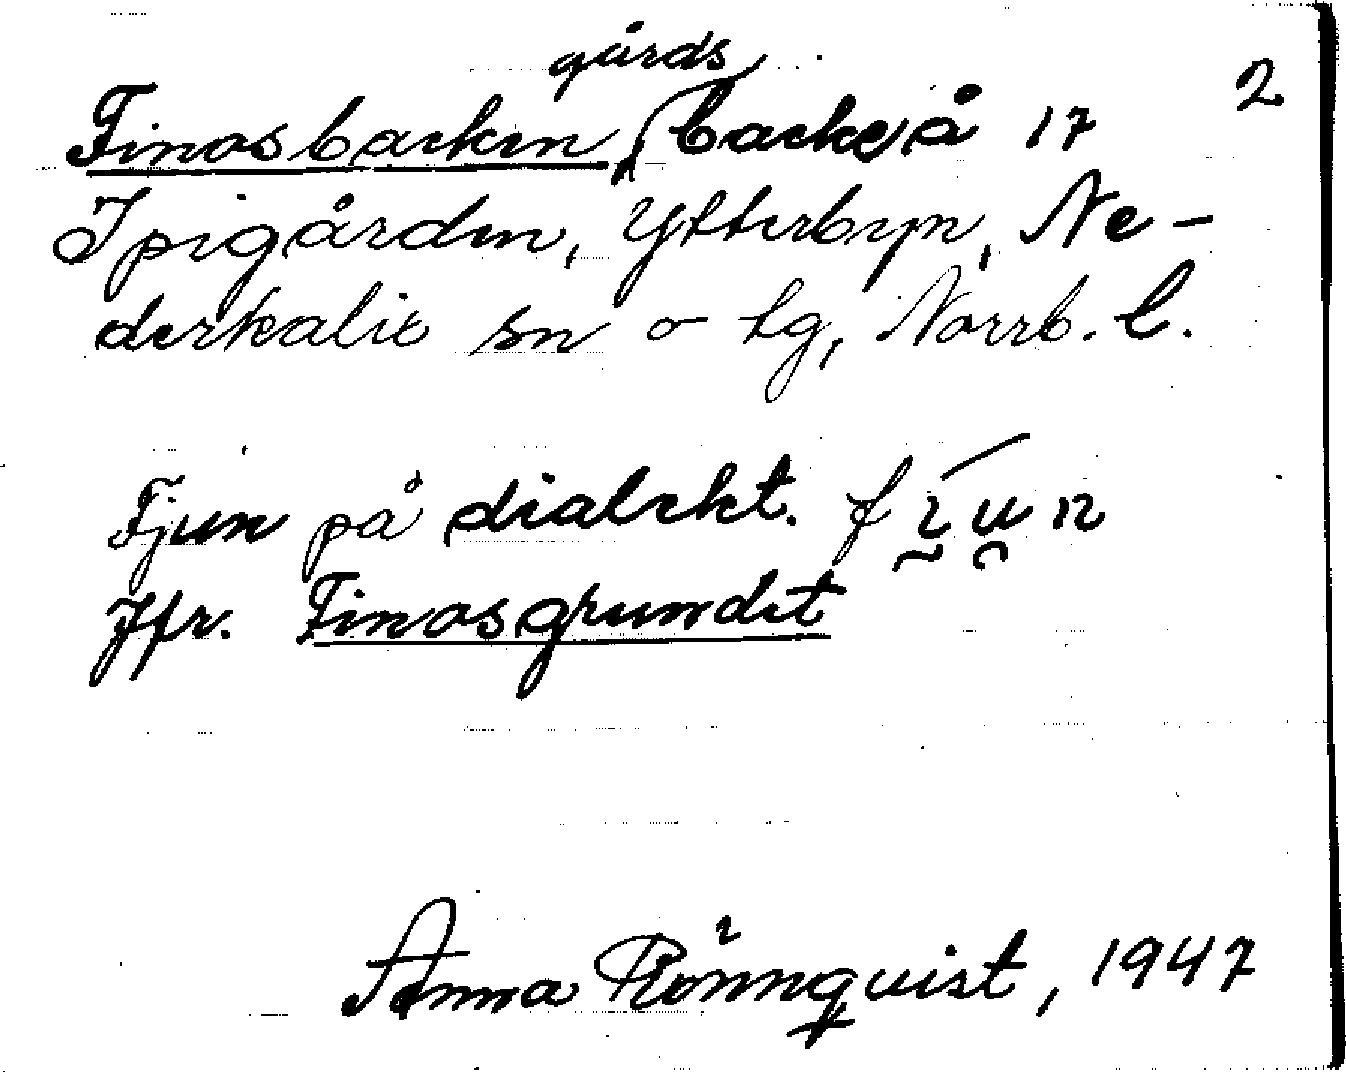 2
gårds
Finosbacken, backe å 17
Spigården, Ytterbyn, Ne-
derkalix sn o tg, Norrb. l.
Fjun på dialekt.
Jfr. Finosgrundet
Anna Rönnquist, 1947